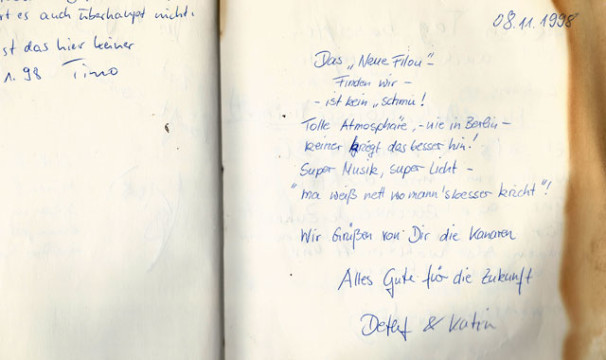 rt es auch überhaupt nicht.
st das hier keiner
1.98 Timo
08.11.1998
Das „Neue Filou"-
Finden wir -
- ist kein „schmu!
Tolle Atmosphäre, - wie in Berlin -
keiner kriegt das besser hin!
Super Musik, super Licht -
"ma weiß nett wo mann's besser kricht"!
Wir Grüßen von Dir die Kanaren
Alles Gute für die Zukunft
Detlef & Katrin